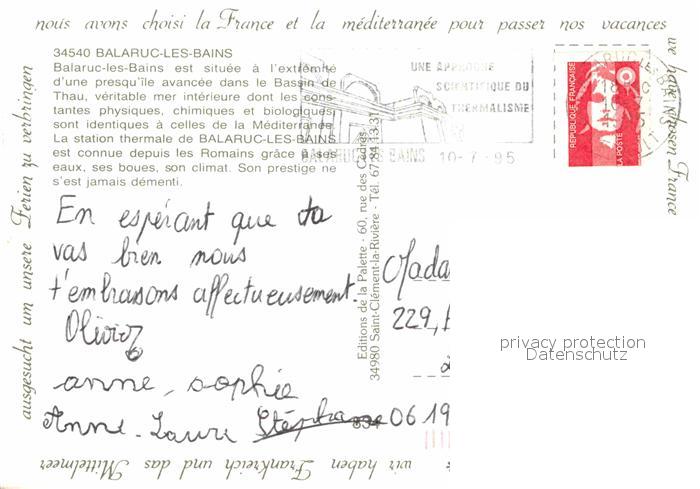 nous avons choisi la France et la méditerranée pour passer nos vacances
we have chosen France
34540 BALARUC-LES-BAINS
Balaruc-les-Bains est située à l'extrémité
d'une presqu'île avancée dans le Bassin de
Thau, véritable mer intérieure dont les cons-
tantes physiques, chimiques et biologiques
sont identiques à celles de la Méditerranée.
La station thermale de BALARUC-LES-BAINS
est connue depuis les Romains grâce à ses
eaux, ses boues, son climat. Son prestige ne
s'est jamais démenti.
UNE APPROCHE
SCIENTIFIQUE DU
THERMALISME
BALARUC LES BAINS 10-7-95
REPUBLIQUE FRANÇAISE
LA POSTE
En espérant que ta
vas bien nous
t'embrassons affectueusement.
Olivier
anne-sophie
Anne-Laure Stéphane
Editions de la Palette - 60, rue des Cèdres
34980 Saint-Clément-la-Rivière - Tél. 67.84.13.31
Mada
229,
0619
privacy protection
Datenschutz
wir haben Frankreich und das Mittelmeer
ausgesucht um unsere Ferien zu verbringen